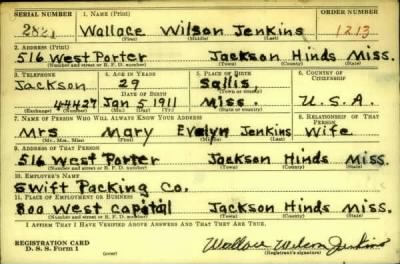 SERIAL NUMBER 1. NAME (Print) ORDER NUMBER
Wallace Wilson Jenkins 1213
(First) (Middle) (Last)
2. ADDRESS (Print)
516 West Porter Jackson Hinds Miss.
(Number and street or R. F. D. number) (Town) (County) (State)
3. TELEPHONE 4. AGE IN YEARS 5. PLACE OF BIRTH 6. COUNTRY OF CITIZENSHIP
Jackson 29 Sallis
DATE OF BIRTH (Town or county)
44427 Jan 5 1911 Miss. U.S.A.
(Exchange) (Number) (Mo.) (Day) (Yr.) (State or country)
7. NAME OF PERSON WHO WILL ALWAYS KNOW YOUR ADDRESS 8. RELATIONSHIP OF THAT PERSON
Mrs Mary Evelyn Jenkins Wife
(Mr., Mrs., Miss) (First) (Middle) (Last)
9. ADDRESS OF THAT PERSON
516 West Porter Jackson Hinds Miss.
(Number and street or R. F. D. number) (Town) (County) (State)
10. EMPLOYER'S NAME
Swift Packing Co.
11. PLACE OF EMPLOYMENT OR BUSINESS
800 West Capital Jackson Hinds Miss.
(Number and street or R. F. D. number) (Town) (County) (State)
I AFFIRM THAT I HAVE VERIFIED ABOVE ANSWERS AND THAT THEY ARE TRUE.
REGISTRATION CARD
D. S. S. Form 1 (over) Wallace Wilson Jenkins
(Registrant's signature)